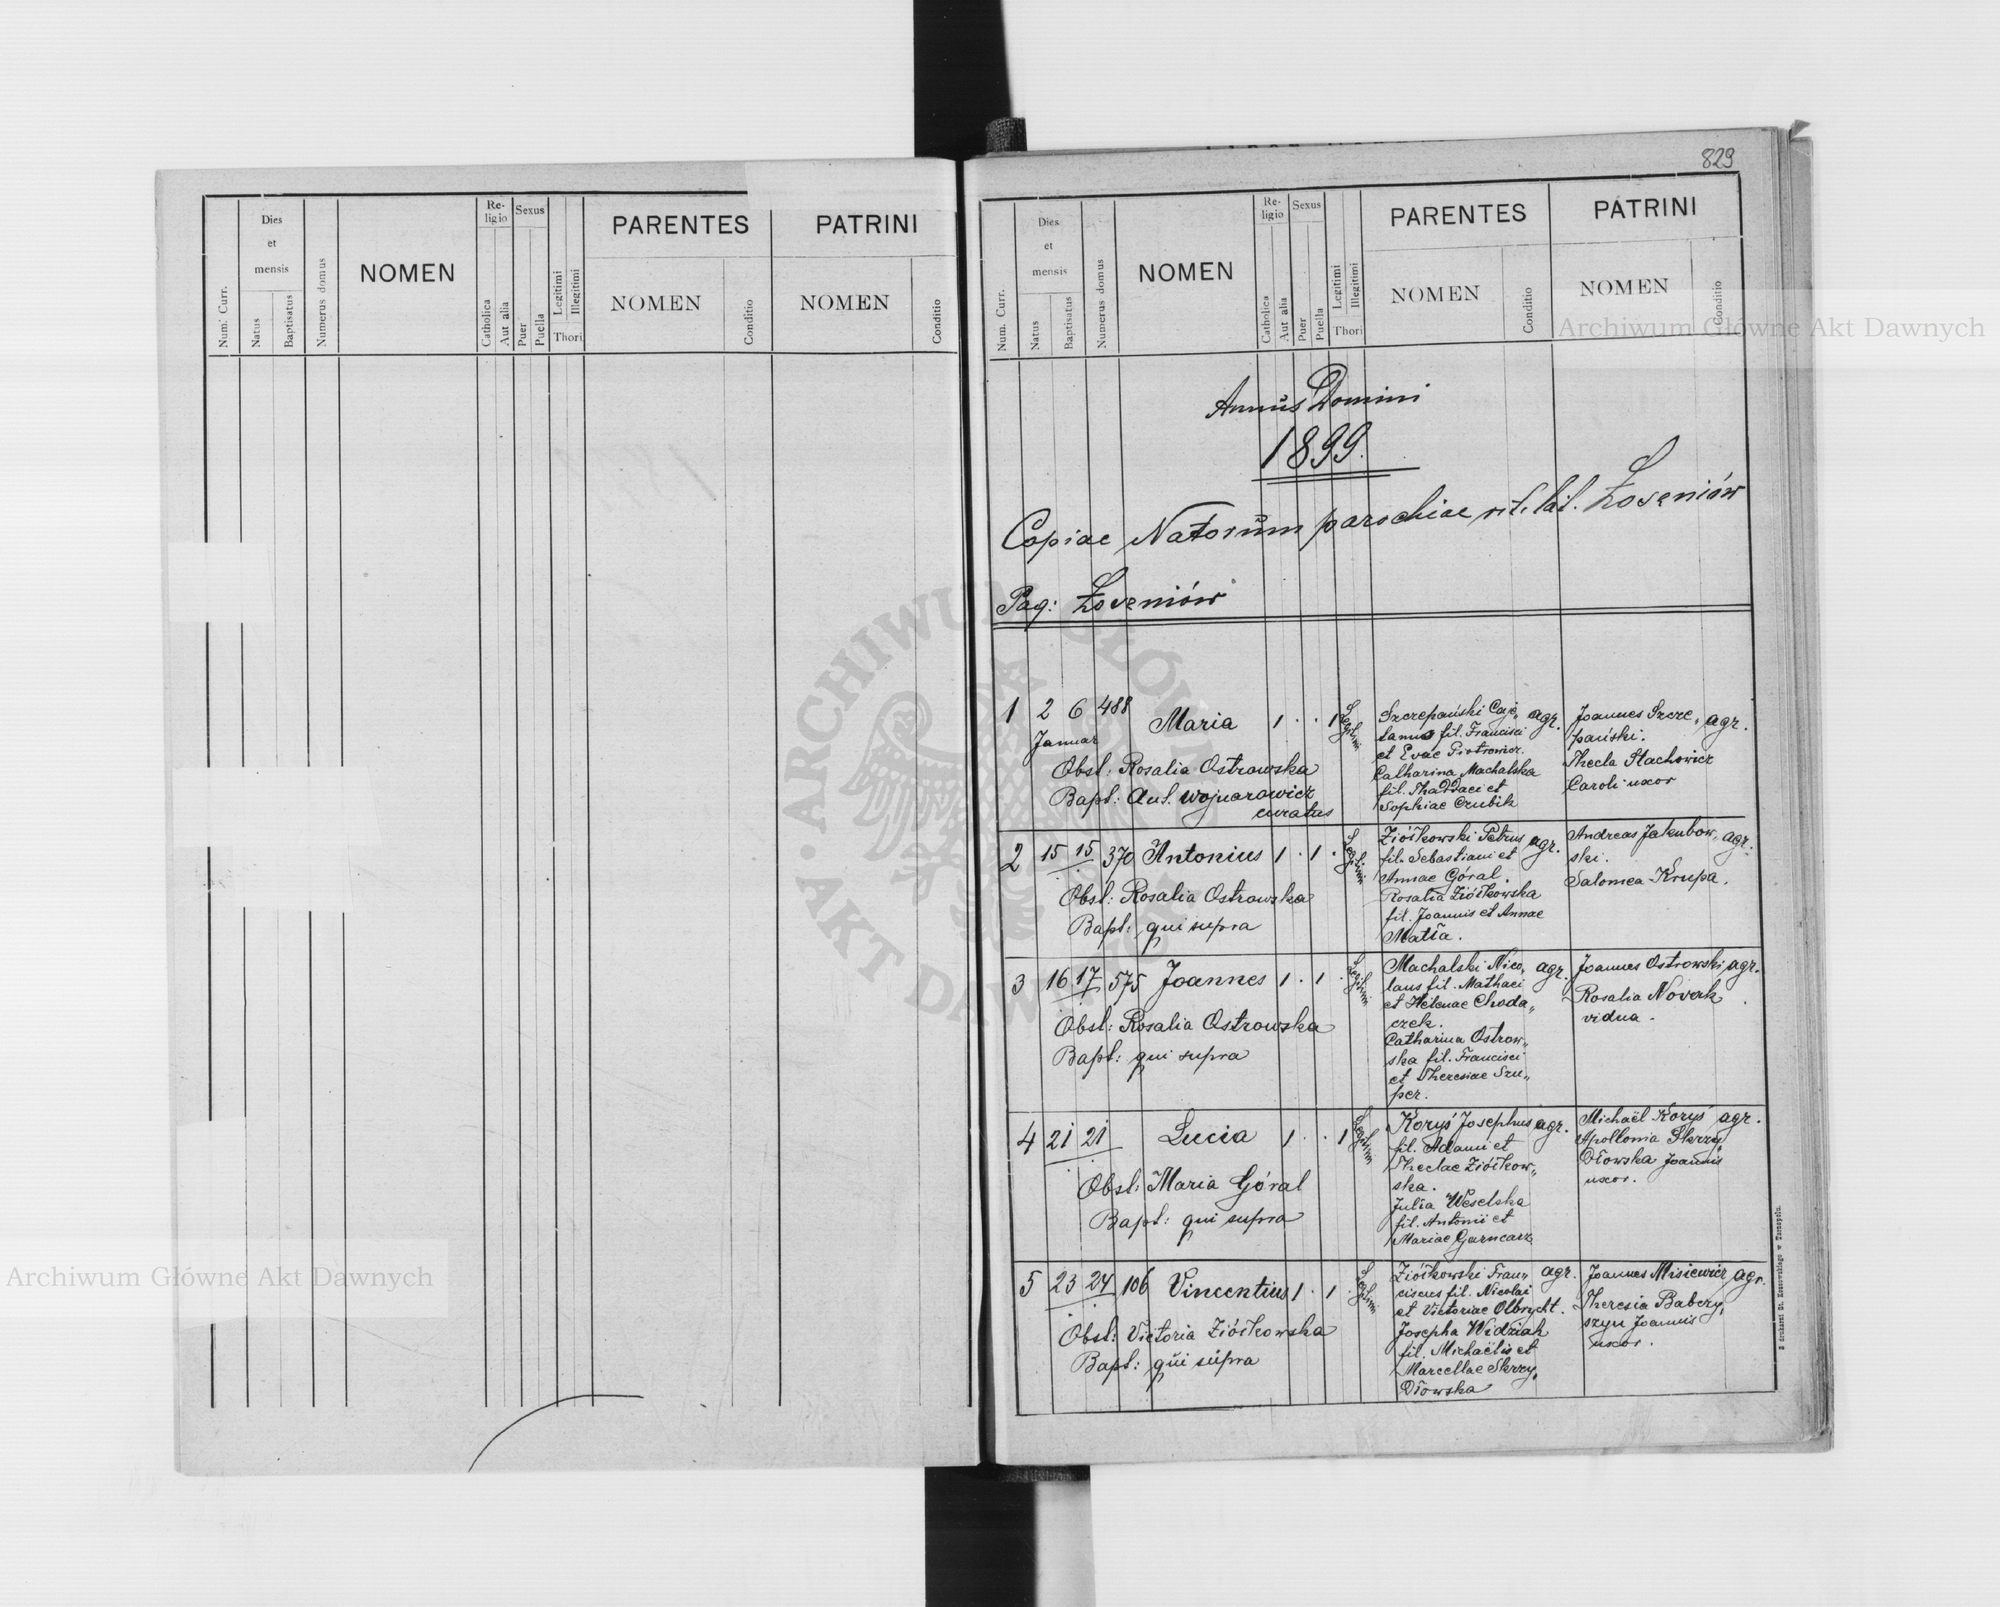 829
Num. Curr.
Dies
et
mensis
Natus
Baptisatus
Numerus domus
NOMEN
Re-
ligio
Catholica
Aut alia
Sexus
Puer
Puella
Legitimi
Illegitimi
Thori
PARENTES
NOMEN
Conditio
PATRINI
NOMEN
Conditio
Num. Curr.
Dies
et
mensis
Natus
Baptisatus
Numerus domus
NOMEN
Re-
ligio
Catholica
Aut alia
Sexus
Puer
Puella
Legitimi
Illegitimi
Thori
PARENTES
NOMEN
Conditio
PATRINI
NOMEN
Conditio
Archiwum Główne Akt Dawnych
Annus Domini
1899.
Copiae Natorum parochiae rit. lat. Łoseniów
Pag: Łoseniów
1 2 6 488 Maria 1 . . 1 Legitimi
Januar
Obst: Rosalia Ostrowska
Bapt: Ant. Wojnarowicz
curatus
Szczepański Caje„ agr.
tanus fil. Francisci
et Evae Piotrowicz.
Catharina Machalska
fil. Thaddaei et
Sophiae Czubik
Joannes Szcze„ agr.
pański.
Thecla Stachowicz
Caroli uxor
2 15 15 370 Antonius 1 . 1 . Legitimi
Obst: Rosalia Ostrowska
Bapt: qui supra
Ziółkowski Petrus agr.
fil. Sebastiani et
Annae Góral.
Rosalia Ziółkowska
fil. Joannis et Annae
Matła.
Andreas Jakubow„ agr.
ski.
Salomea Krupa.
3 16 17 575 Joannes 1 . 1 . Legitimi
Obst: Rosalia Ostrowska
Bapt: qui supra
Machalski Nico„ agr.
laus fil. Mathaei
et Helenae Choda„
czek.
Catharina Ostrow„
ska fil. Francisci
et Theresiae Szu„
per.
Joannes Ostrowski agr.
Rosalia Nowak
vidua.
4 21 21 Lucia 1 . . 1 Legitimi
Obst: Maria Góral
Bapt: qui supra
Koryś Josephus agr.
fil. Adami et
Theclae Ziółkow„
ska.
Julia Weselska
fil. Antonii et
Mariae Garncarz
Michaël Koryś agr.
Apollonia Skrzy„
dłowska Joannis
uxor.
5 23 24 106 Vincentius 1 . 1 . Legitimi
Obst: Victoria Ziółkowska
Bapt: qui supra
Ziółkowski Fran„ agr.
ciscus fil. Nicolai
et Victoriae Olbrycht.
Josepha Widziak
fil. Michaëlis et
Marcellae Skrzy„
dłowska
Joannes Misiewicz agr.
Theresia Babczy„
szyn Joannis
uxor.
Z drukarni St. Kossowskiego w Tarnopolu.
ARCHIWUM GŁÓWNE AKT DAWNYCH
Archiwum Główne Akt Dawnych